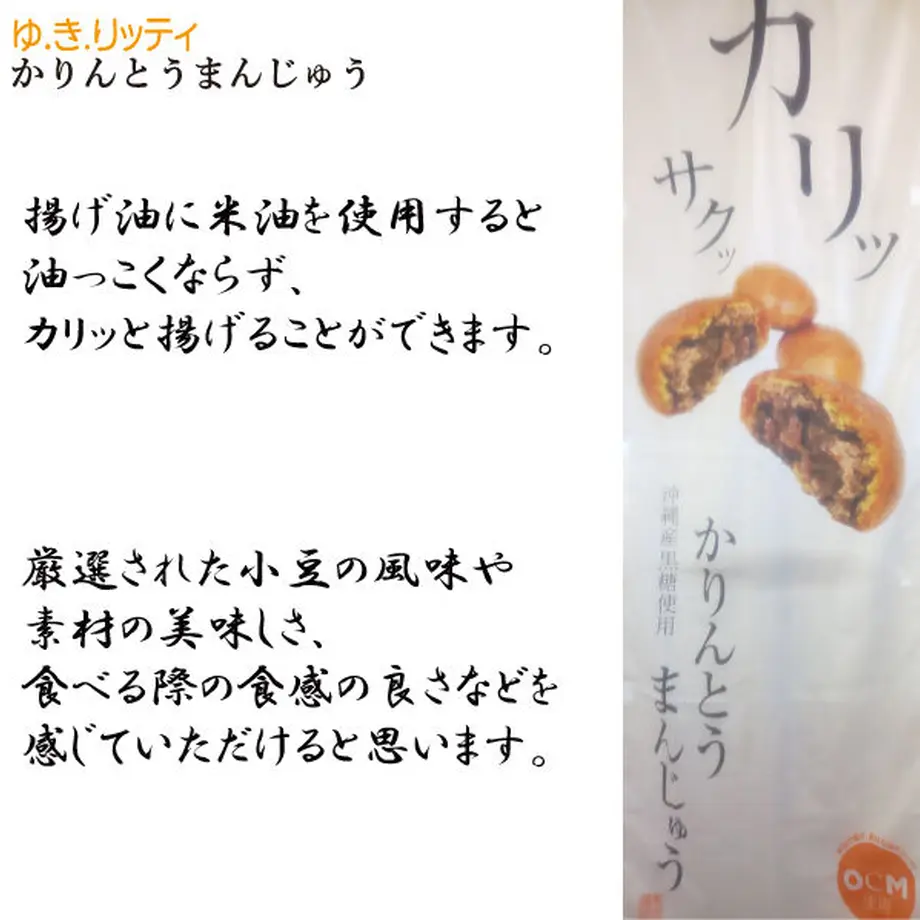 ゆ.き.リッティ
かりんとうまんじゅう
揚げ油に米油を使用すると
油っこくならず、
カリッと揚げることができます。
厳選された小豆の風味や
素材の美味しさ、
食べる際の食感の良さなどを
感じていただけると思います。
カリッ
サクッ
沖縄産黒糖使用
かりんとう
まんじゅう
OCM